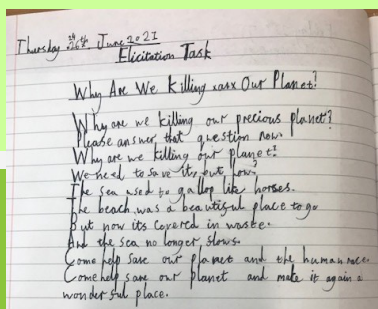 Thursday 24th June 2021
Elicitation Task
Why Are We killing Our Planet?
Why are we killing our precious planet?
Please answer that question now.
Why are we killing our planet!
We need to save it, but how?
The sea used to gallop like horses.
The beach was a beautiful place to go
But now its covered in waste.
And the sea no longer flows.
Come help save our planet and the human race.
Come help save our planet and make it again a
wonderful place.